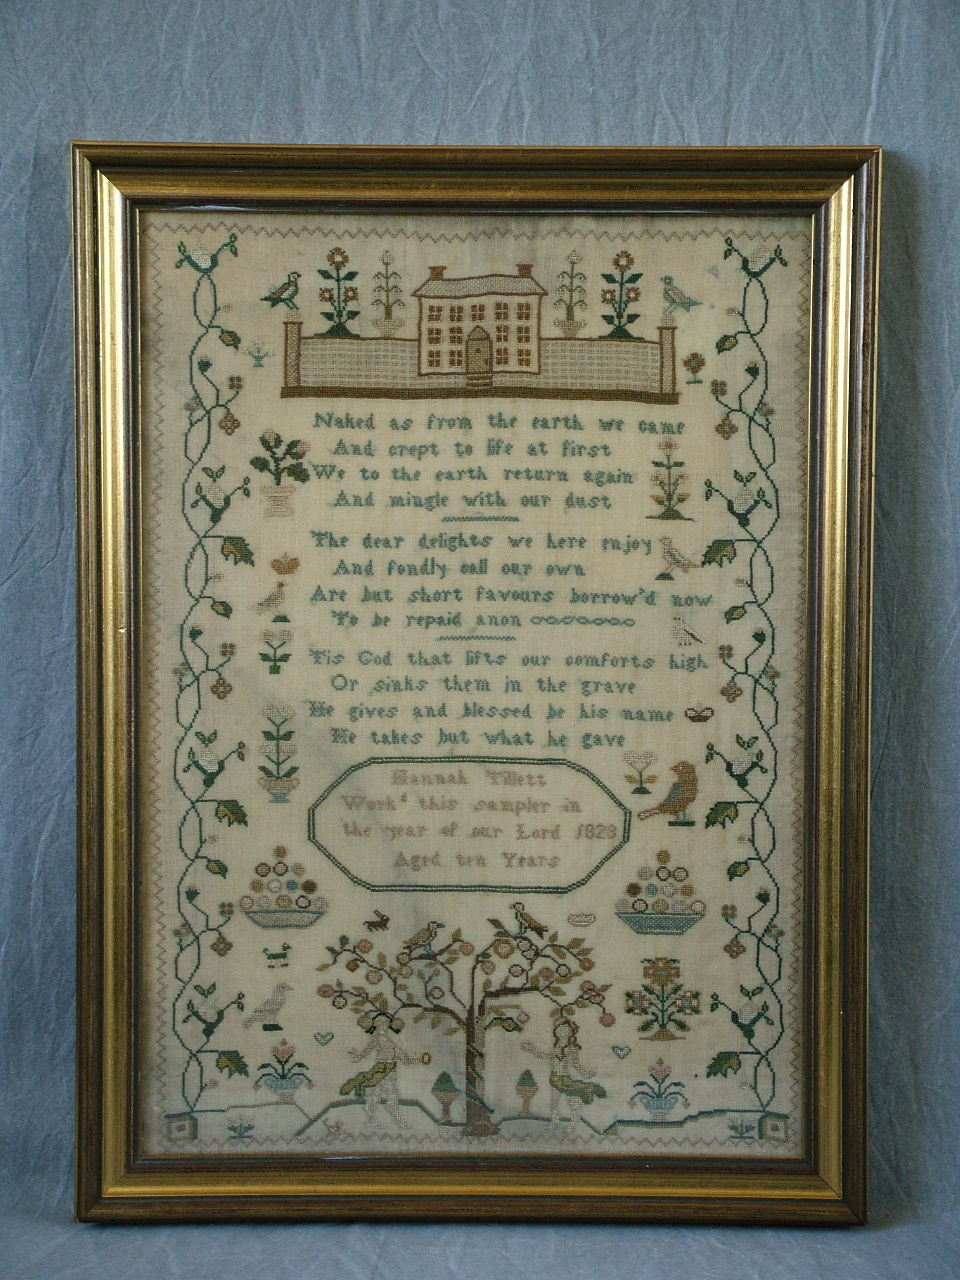 Naked as from the earth we came
And crept to life at first
We to the earth return again
And mingle with our dust
The dear delights we here enjoy
And fondly call our own
Are but short favours borrow'd now
To be repaid anon
Tis God that lifts our comforts high
Or sinks them in the grave
He gives and blessed be his name
He takes but what he gave
Hannah Tillett
Workd this sampler in
the year of our Lord 1828
Aged ten Years